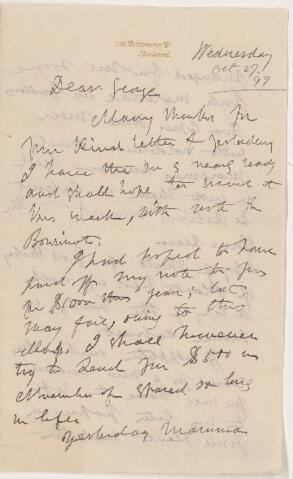 Wednesday
Oct. 27/97
Dear George
Many thanks for
your kind letter of yesterday
I have the M S nearly ready
and shall hope to send it
this week, with note to
Bourinot.
I had hoped to have
paid off my note to you
for $1000 this year; but
may fail, owing to this
I shall however
try to send you $500 in
November if spared so long
in life.
Yesterday Mamma